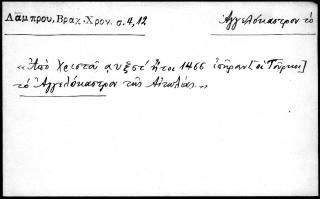 Λάμπρου, Βραχ. Χρον. σ. 4, 12
Ἀγγελόκαστρον τὸ
« Ἀπὸ Χριστοῦ αυξστ' ἤτοι 1466 ἐπῆραν [οἱ Τοῦρκοι]
τὸ Ἀγγελόκαστρον τῆς Αἰτωλίας. »